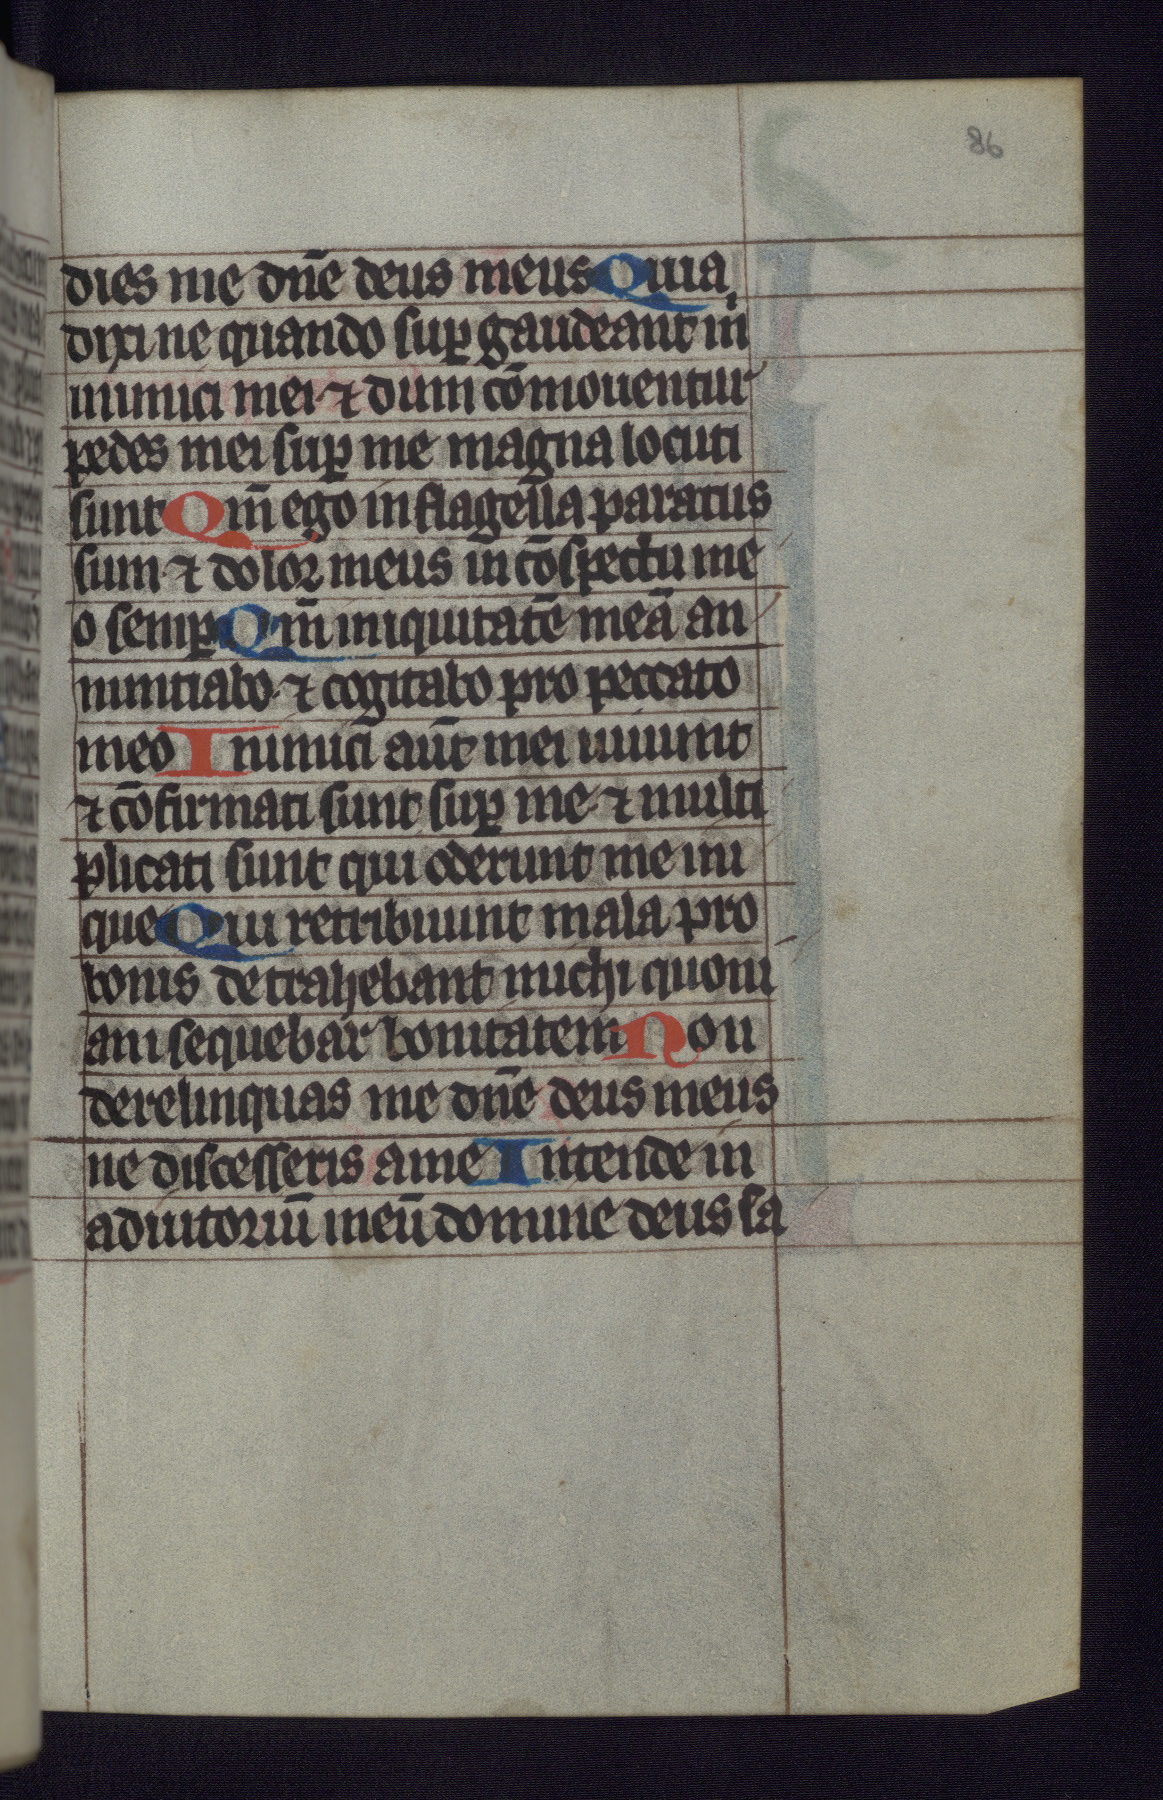 86
dies me dn̄e deus meus Quia
dixi ne quando sup̲ gaudeant in
inimici mei ⁊ dum cōmouentur
pedes mei sup̲ me magna locuti
sunt Qm̄ ego in flagella paratus
sum ⁊ dolor meus in cōspectu me
o semp̲ Qm̄ iniquitatē meā an
nuntiabo ⁊ cogitabo pro peccato
meo Inimici aūt mei uiuunt
⁊ cōfirmati sunt sup̲ me ⁊ multi
plicati sunt qui oderunt me ini
que Qui retribuunt mala pro
bonis detrahebant michi quoni
am sequebar bonitatem Non
derelinquas me dn̄e deus meus
ne discesseris a me Intende in
adiutoriū meū domine deus sa